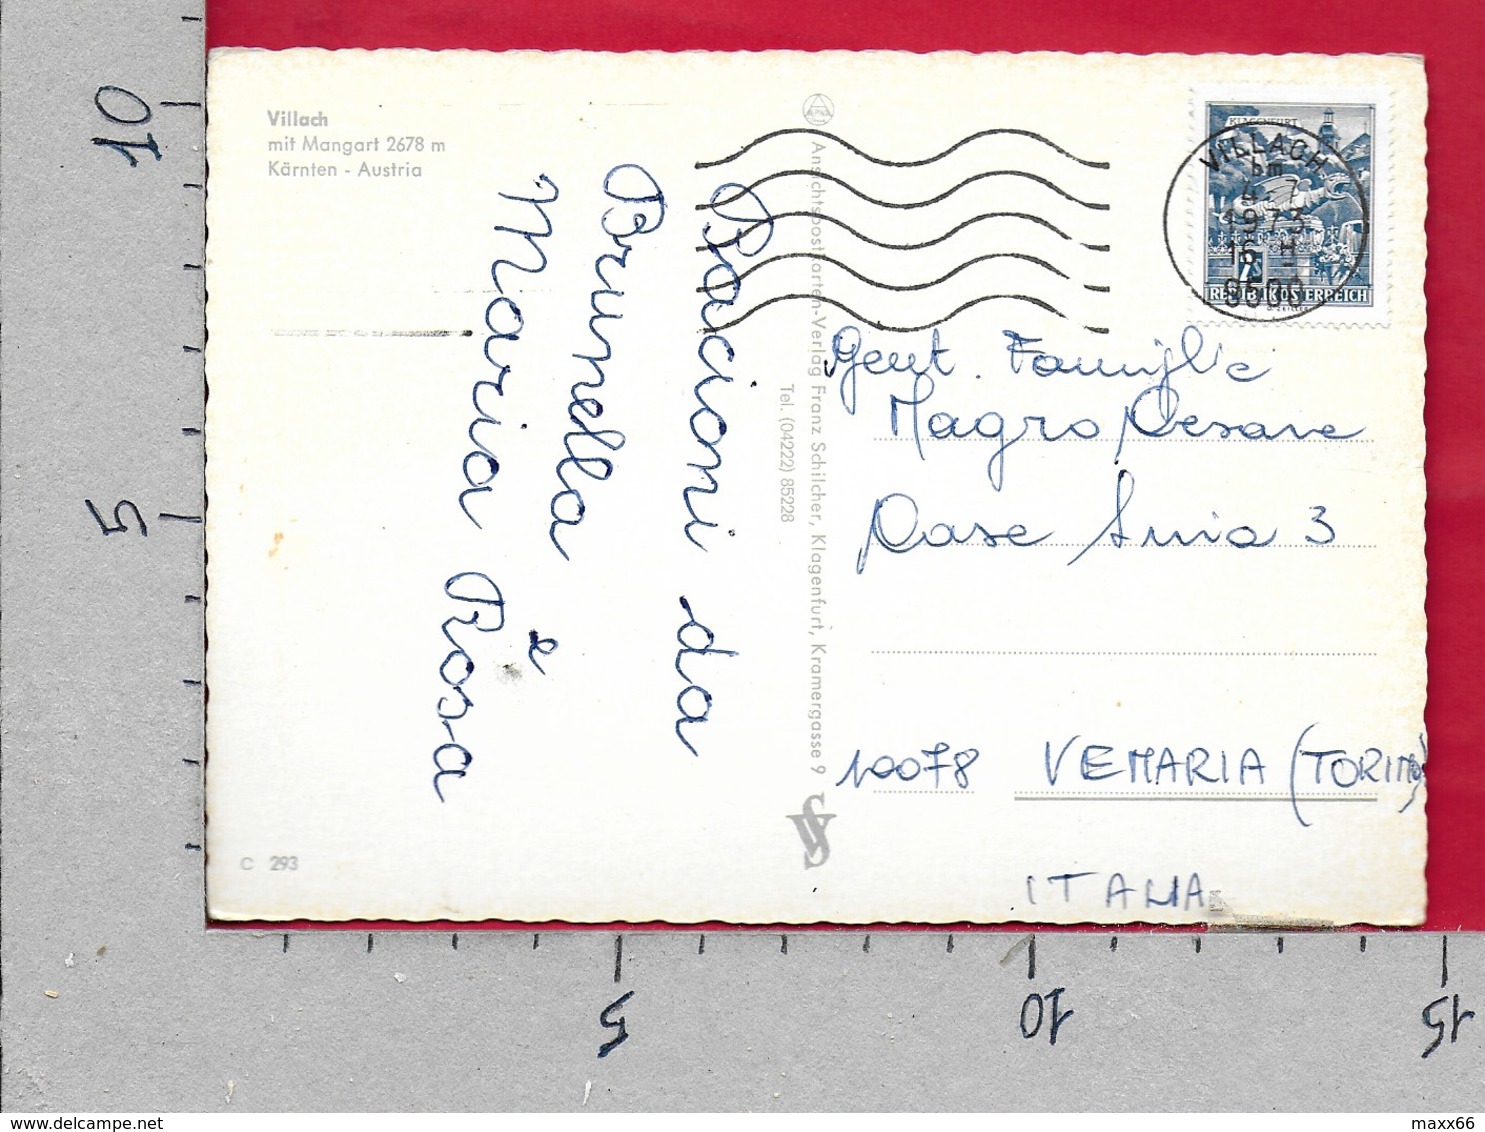 Villach
mit Mangart 2678 m
Kärnten - Austria
Bacioni da
Brunella e
Maria Rosa
Ansichtspostkarten-Verlag Franz Schilcher, Klagenfurt, Kramergasse 9
Tel. (04222) 85228
C 293
KLAGENFURT
REPUBLIK ÖSTERREICH
VILLACH
bm
4 7
1973
16 H
9500
Gent. Famiglia
Magro Cesare
Case Snia 3
10078 VENARIA (TORINO)
ITALIA
10
5
5
10
15
delcampe.net
maxx66